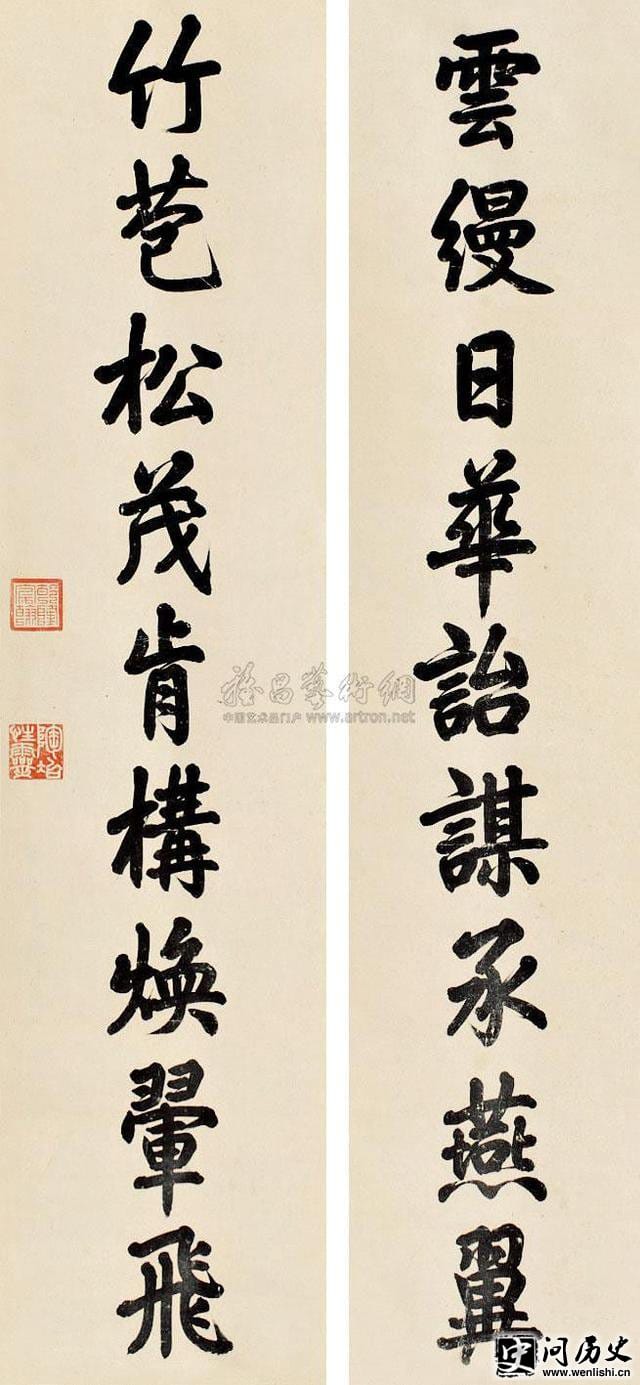 雲縵日華詒謀承燕翼
竹苞松茂肯構煥翬飛
乾隆宸翰
陶冶性靈
雅昌藝術網
中国艺术品门户 www.artron.net
问历史
www.wenlishi.cn